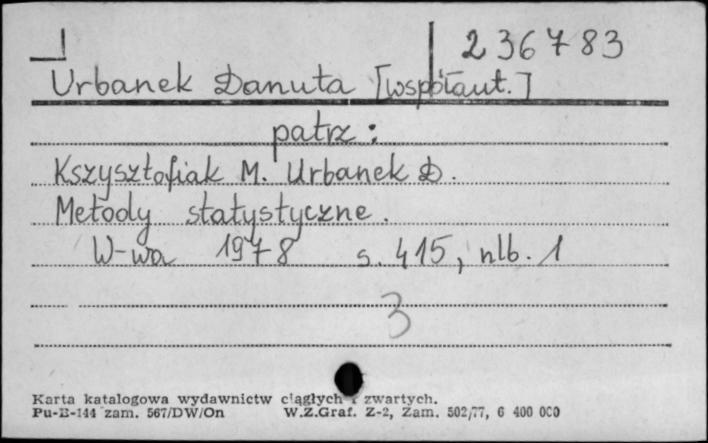 236783
Urbanek Danuta [współaut.]
patrz:
Kszysztofiak M. Urbanek D.
Metody statystyczne.
W-wa 1978 s. 415, nlb. 1
3
Karta katalogowa wydawnictw ciągłych i zwartych.
Pu-B-144 zam. 567/DW/On W.Z.Graf. Z-2, Zam. 502/77, 6 400 000